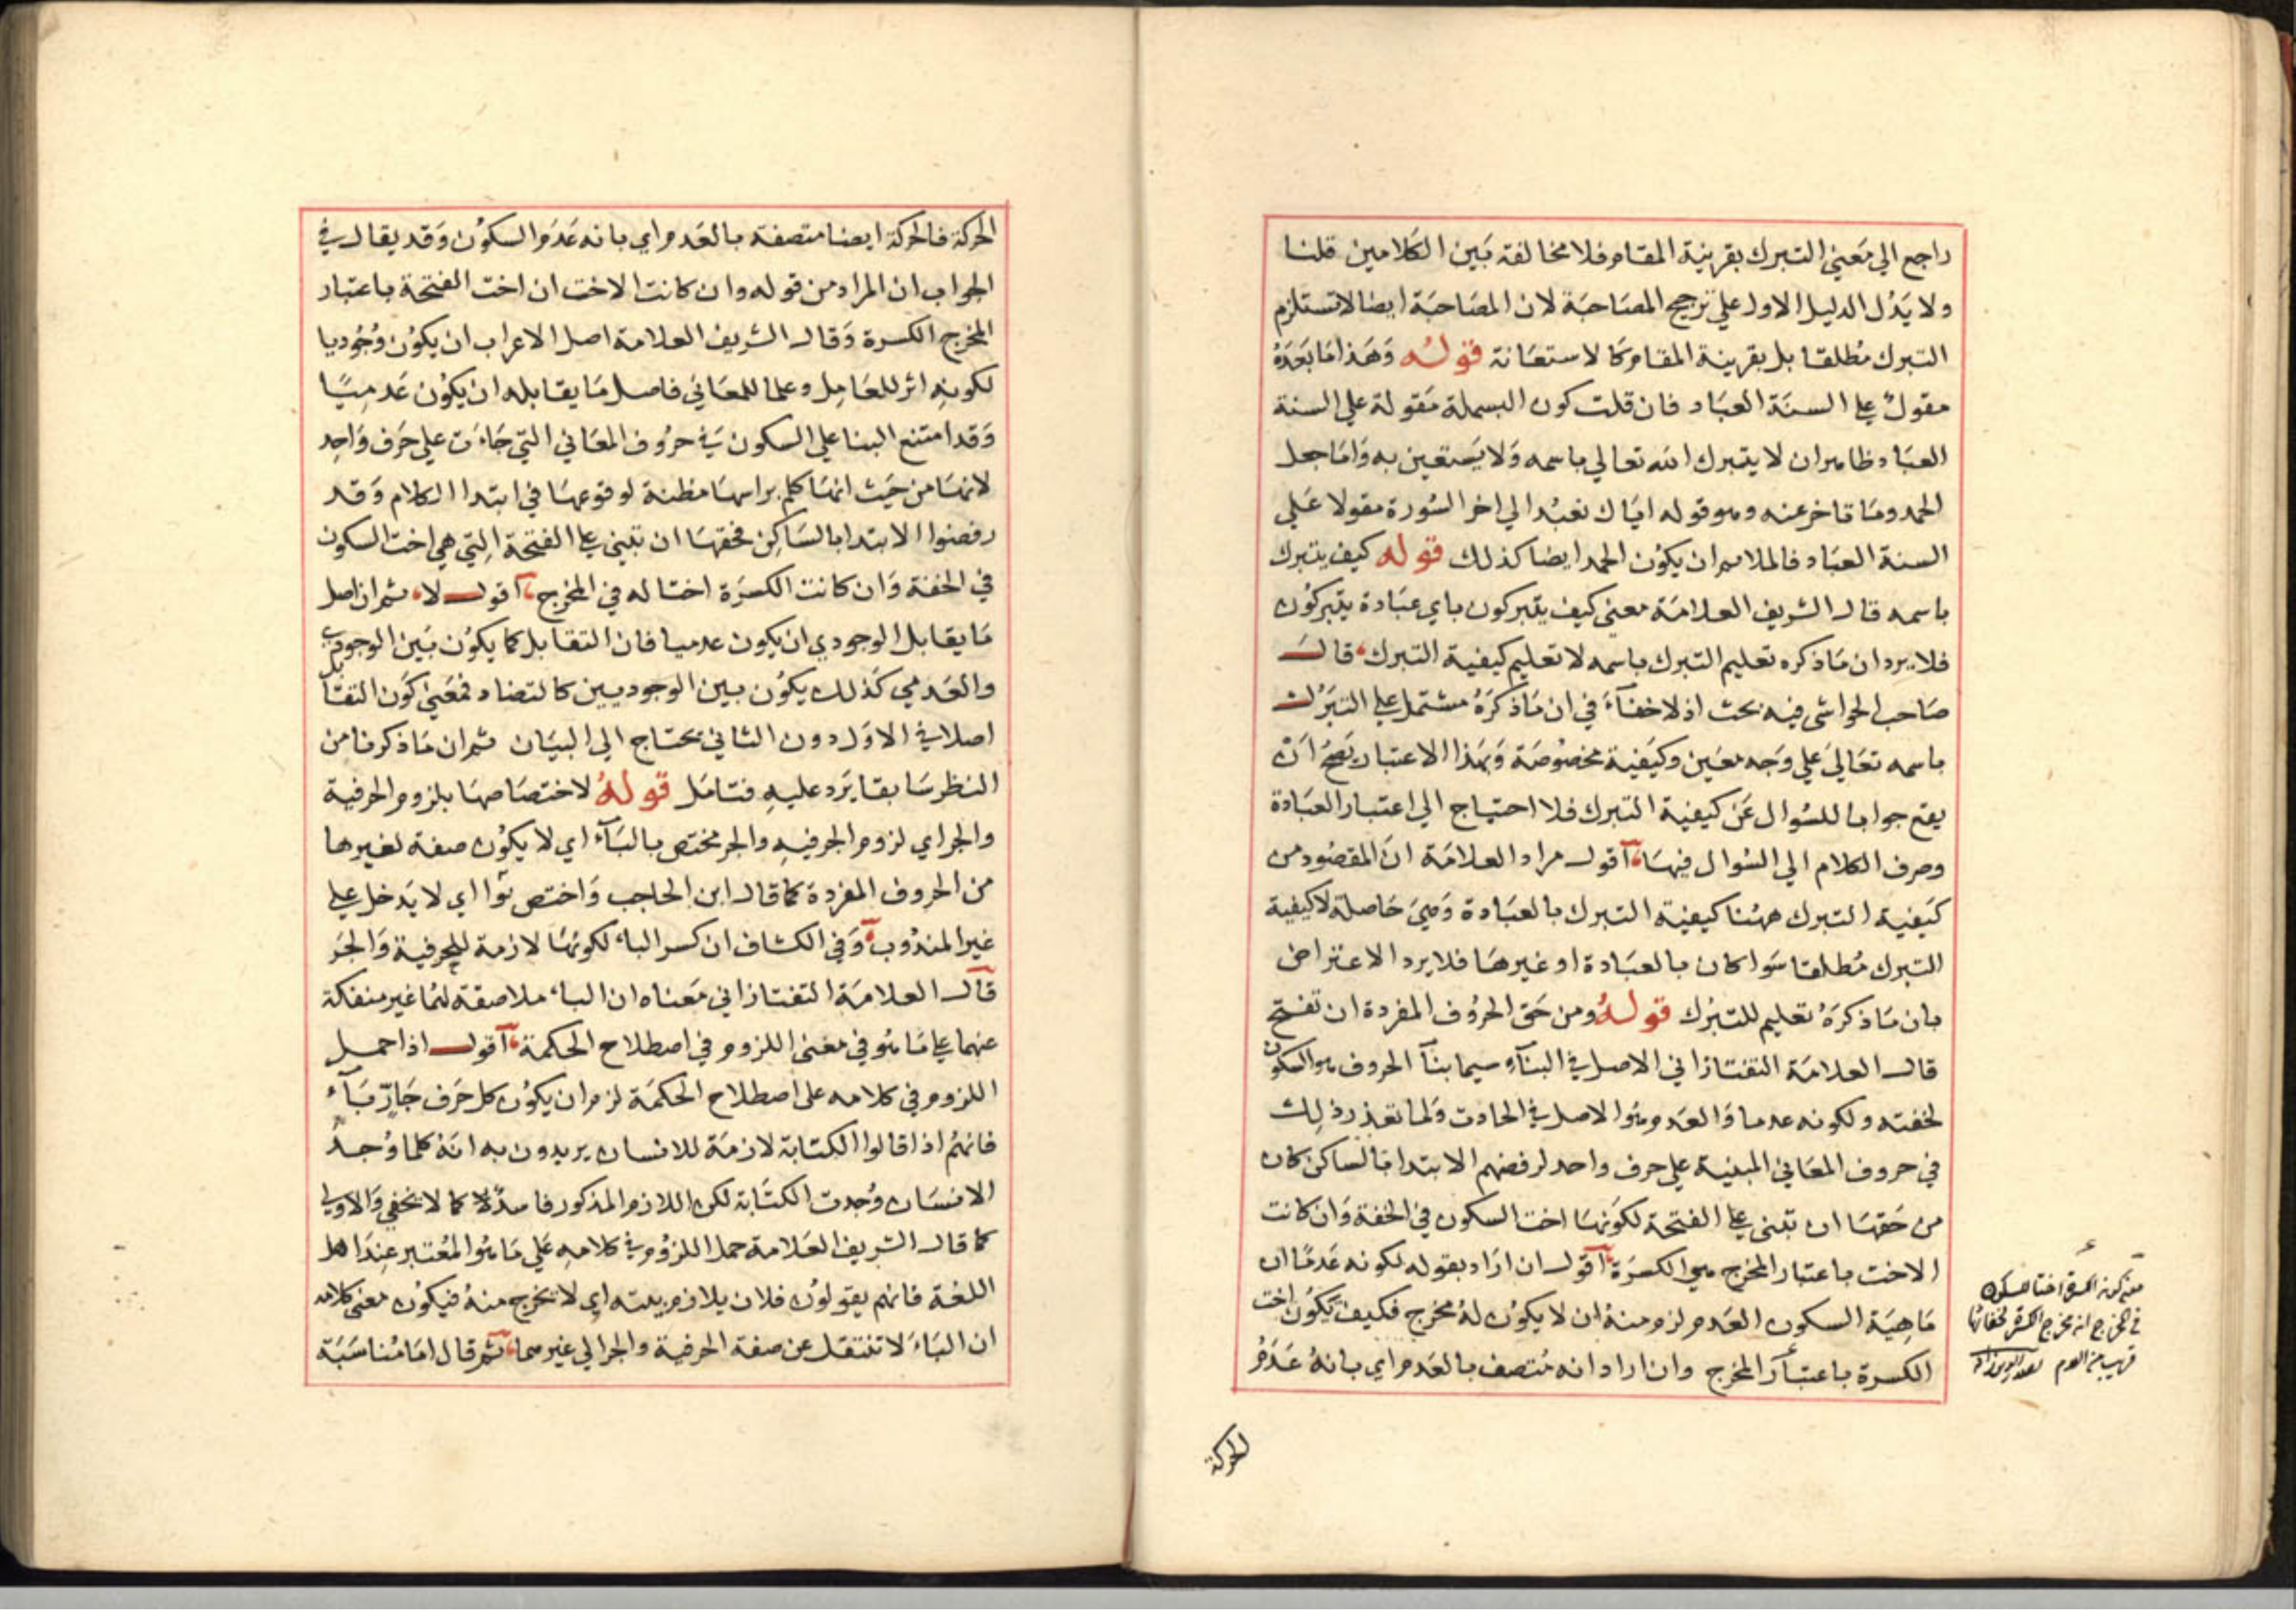 راجع الي معني التبرك بقرينة المقام فلا مخالفة بين الكلامين قلنا
ولا يدل الدليل الاول علي ترجيح المصاحبة لان المصاحبة ايضا لا تستلزم
التبرك مطلقا بل بقرينة المقام كالاستعانة قوله وهذا ما بعده
مقول علي السنة العباد فان قلت كون البسملة مقولة علي السنة
العباد ظاهر ان لا يتبرك الله تعالي باسمه ولا يستعين به واما جعل
الحمد وما تاخر عنه وهو قوله اياك نعبد الي اخر السورة مقولا علي
السنة العباد فالملاهر ان يكون الحمد ايضا كذلك قوله كيف يتبرك
باسمه قال الشريف العلامة معني كيف يتبركون باي عبادة يتبركون
فلا يرد ان ما ذكره تعليم التبرك باسمه لا تعليم كيفية التبرك قال
صاحب الحواشي فيه بحث اذ لا خفاء في ان ما ذكره مشتمل علي التبرك
باسمه تعالي علي وجه معين وكيفية مخصوصة وبهذا الاعتبار يصح ان
يقع جوابا للسوال عن كيفية التبرك فلا احتياج الي اعتبار العبادة
وصرف الكلام الي السوال فيها اقول مراد العلامة ان المقصود من
كيفية التبرك ههنا كيفية التبرك بالعبادة وهي حاصلة لا كيفية
التبرك مطلقا سوا كان بالعبادة او غيرها فلا يرد الاعتراض
بان ما ذكره تعليم للتبرك قوله ومن حق الحروف المفردة ان تفتح
قال العلامة التفتازاني الاصل في البناء سيما بنا الحروف هو السكون
لخفته ولكونه عدما والعدم هو الاصل في الحادث ولما تعذر ذلك
في حروف المعاني المبنية علي حرف واحد لرفضهم الابتدا بالساكن كان
من حقها ان تبني علي الفتحة لكونها اخت السكون في الخفة وان كانت
الاخت باعتبار المخرج هي الكسرة اقول ان اراد بقوله لكونه عدما ان
ماهية السكون العدم لزم منه ان لا يكون له مخرج فكيف تكون اخت
الكسرة باعتبار المخرج وان اراد انه متصف بالعدم اي بانه عدم
الحركة
الحركة فالحركة ايضا متصفة بالعدم اي بانه عدم السكون وقد يقال في
الجواب ان المراد من قوله وان كانت الاخت ان اخت الفتحة باعتبار
المخرج الكسرة وقال الشريف العلامة اصل الاعراب ان يكون وجوديا
لكونه اثر للعامل وعلما للمعاني فاصل ما يقابله ان يكون عدميا
وقد امتنع البنا علي السكون في حروف المعاني التي جاءت علي حرف واحد
لانها من حيث انها كلم براسها مظنة لوقوعها في ابتدا الكلام وقد
رفضوا الابتدا بالساكن فحقها ان تبني علي الفتحة التي هي اخت السكون
في الخفة وان كانت الكسرة اختا له في المخرج اقول لا ثم ان اصل
ما يقابل الوجودي ان يكون عدميا فان التقابل كما يكون بين الوجودي
والعدمي كذلك يكون بين الوجوديين كالتضاد فمعني كون التقابل
اصلا في الاول دون الثاني يحتاج الي البيان ثم ان ما ذكرنا من
النظر سابقا يرد عليه فتامل قوله لاختصاصها بلزوم الحرفية
والجر اي لزوم الحرفية والجر مختص بالباء اي لا يكون صفة لغيرها
من الحروف المفردة كما قال ابن الحاجب واختص بوا اي لا يدخل علي
غير المندوب وفي الكشاف ان كسر الباء لكونها لازمة للحرفية والجر
قال العلامة التفتازاني معناه ان الباء ملاصقة لهما غير منفكة
عنهما علي ما هو في معني اللزوم في اصطلاح الحكمة اقول اذا حمل
اللزوم في كلامه علي اصطلاح الحكمة لزم ان يكون كل حرف جار باء
فانهم اذا قالوا الكتابة لازمة للانسان يريدون به انه كلما وجد
الانسان وجدت الكتابة لكن اللازم المذكور فاسد كما لا يخفي والاولي
كما قال الشريف العلامة حمل اللزوم في كلامه علي ما هو المعتبر عند اهل
اللغة فانهم يقولون فلان يلازم بيته اي لا يخرج منه فيكون معني كلامه
ان الباء لا تنتقل عن صفة الحرفية والجر الي غيرهما ثم قال اما مناسبة